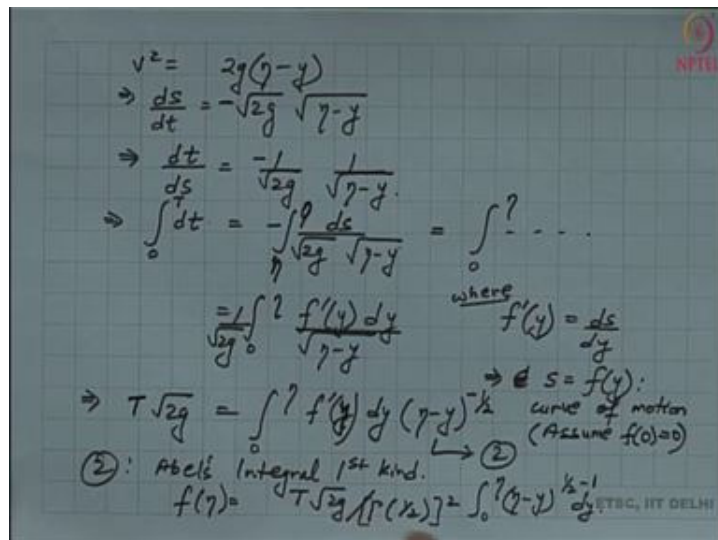 NPTEL
v² = 2g(η-y)
⇒ ds/dt = -√2g √η-y
⇒ dt/ds = -1/√2g 1/√η-y.
⇒ ∫₀ᵀ dt = -∫ ds/√2g √η-y = ∫₀^η - - - -
= 1/√2g ∫₀^η f'(y) dy/√η-y where f'(y) = ds/dy
⇒ s = f(y):
⇒ T√2g = ∫₀^η f'(y) dy (η-y)^-½ curve of motion
(Assume f(0)=0)
↳ ②
②: Abel's Integral 1st kind.
f(η) = T√2g/[Γ(1/2)]² ∫₀^η (η-y)^½-1 dy.
ETSC, IIT DELHI